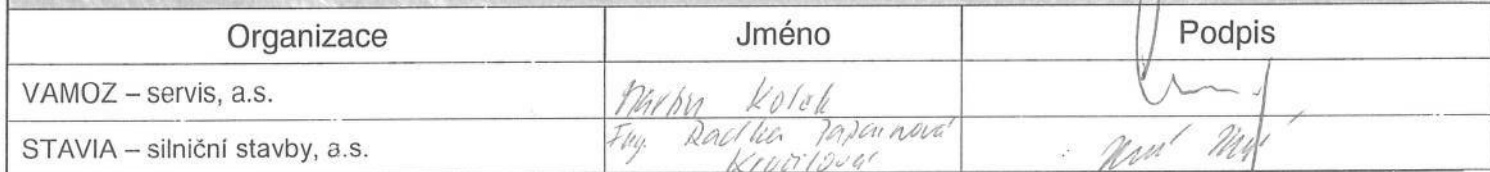 Organizace Jméno Podpis
VAMOZ – servis, a.s. Martin Kolek
STAVIA – silniční stavby, a.s. Ing. Radka